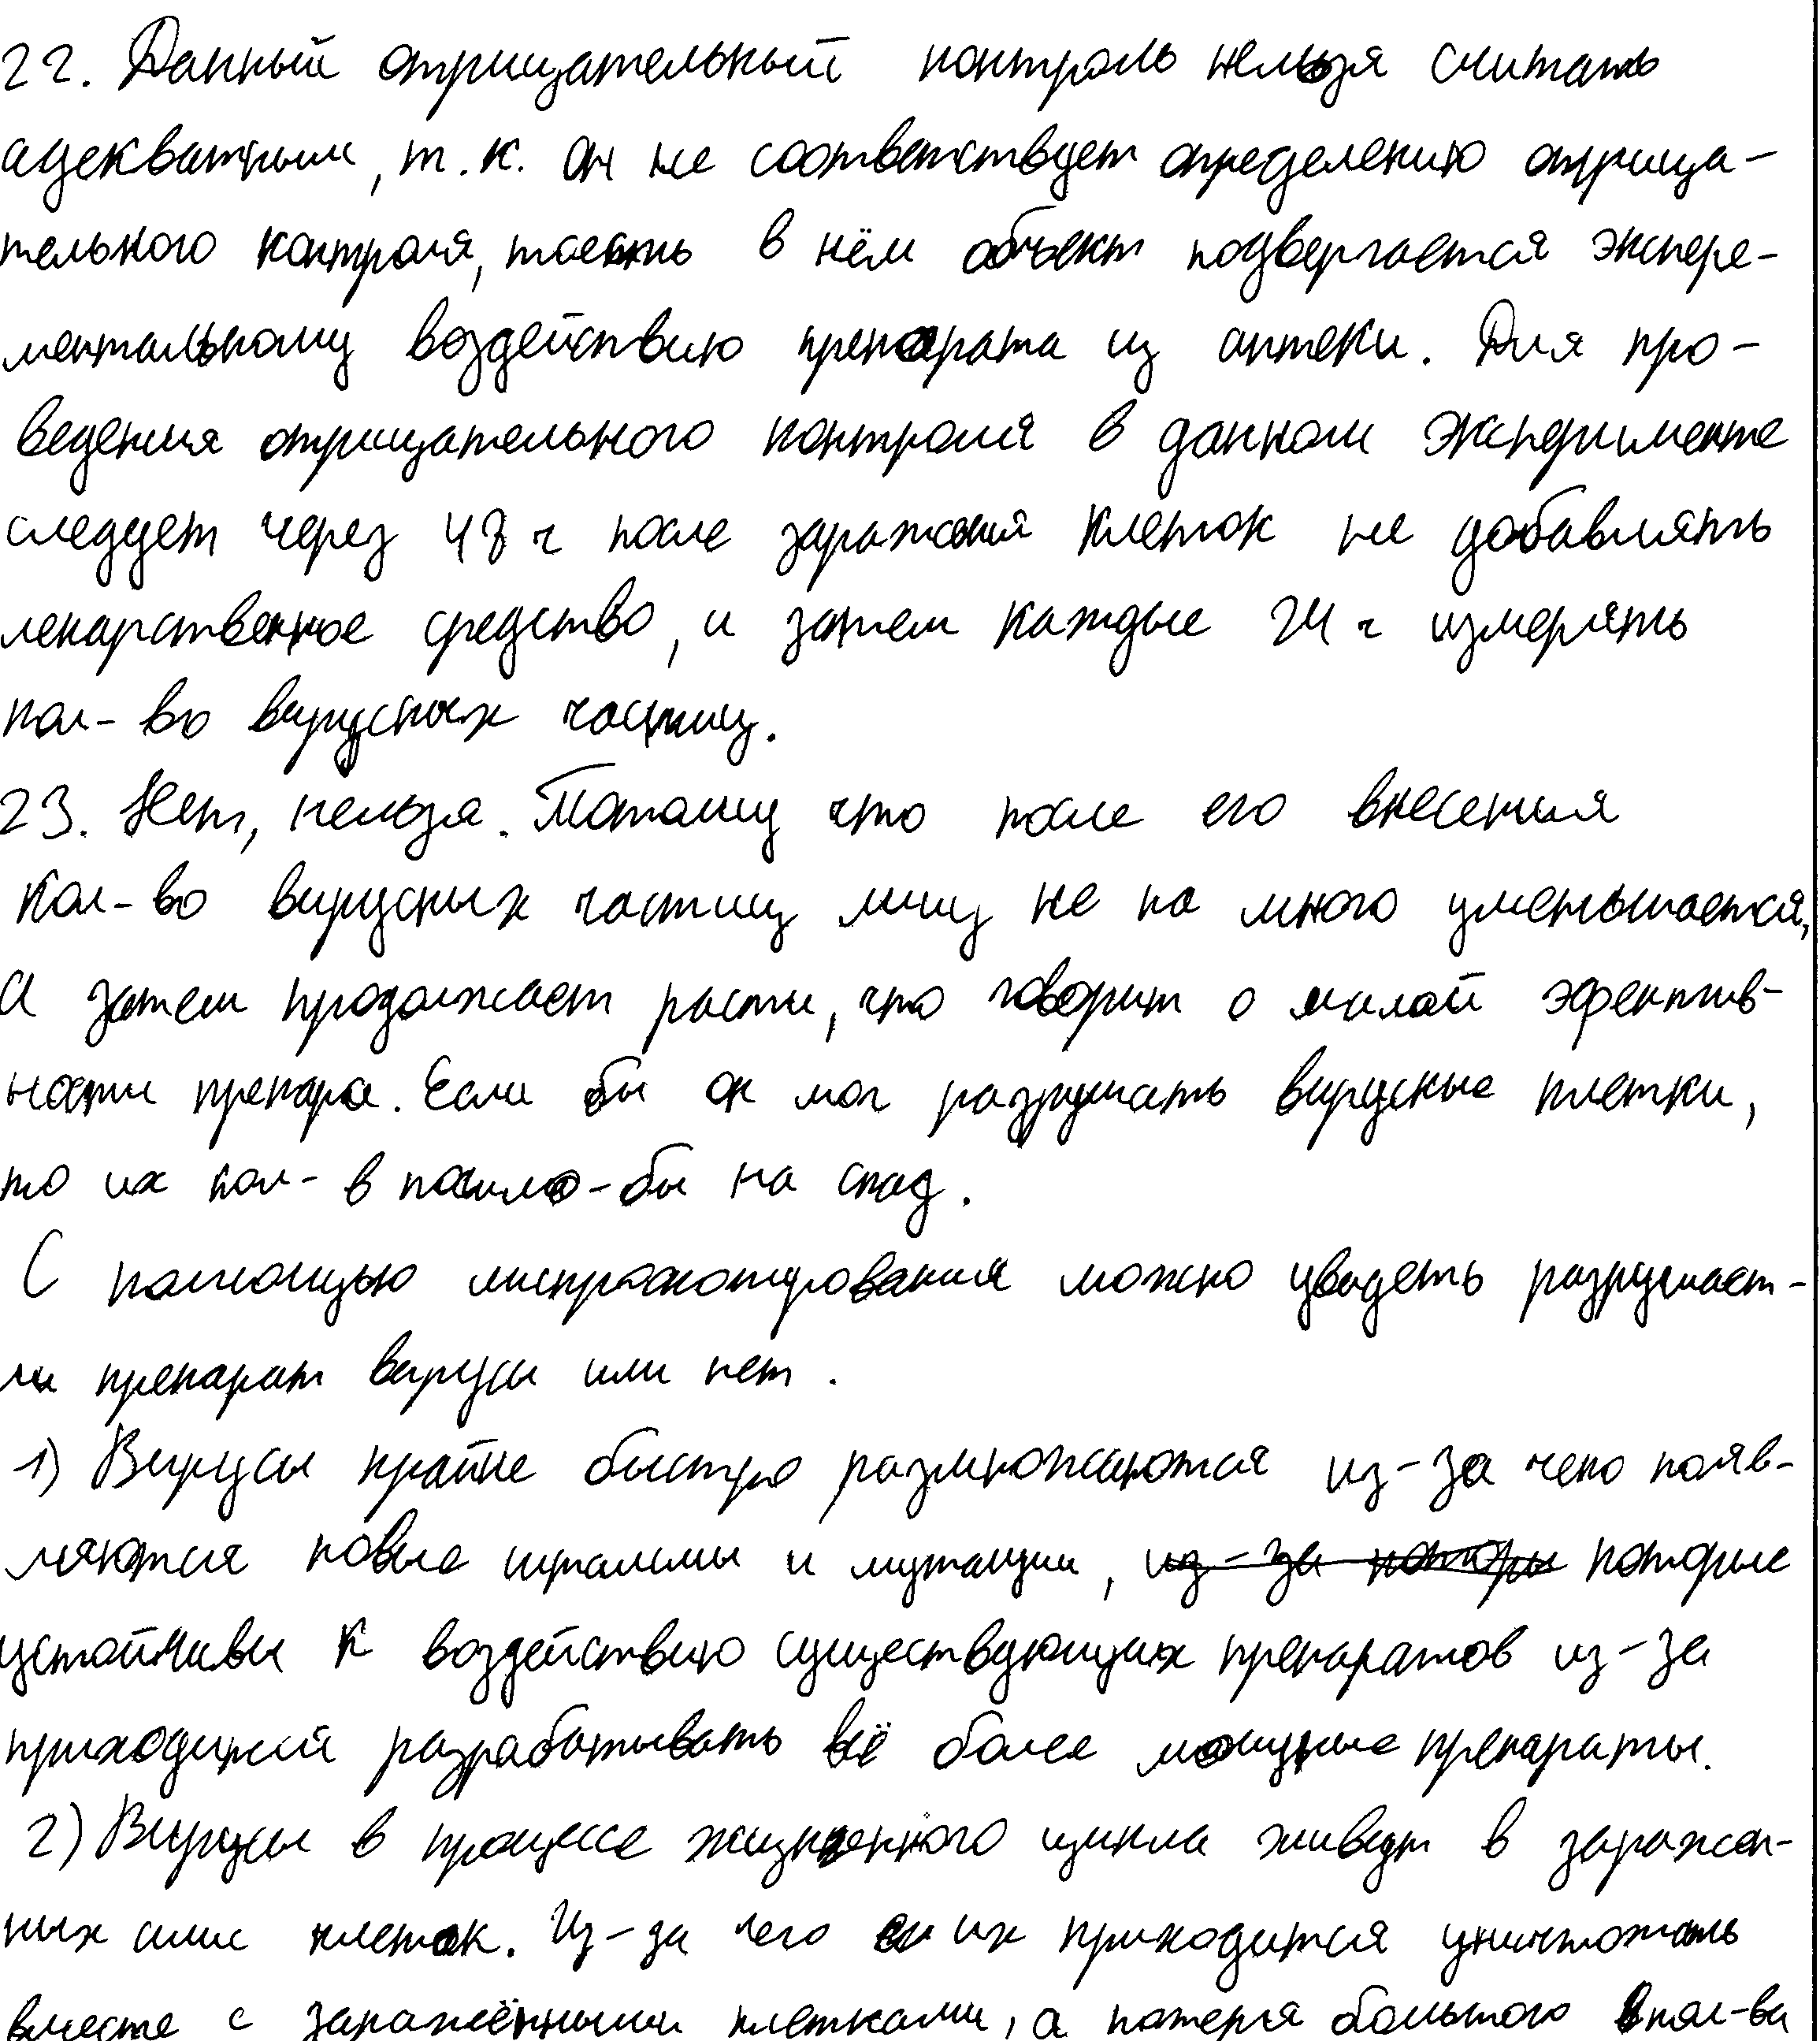 22. Данный отрицательный контроль нельзя считать
адекватным, т.к. он не соответствует определению отрица-
тельного контроля, тоесть в нём объект подвергается экспере-
ментальному воздействию препарата из аптеки. Для про-
ведения отрицательного контроля в данном эксперименте
следует через 48 ч после заражения клеток не добавлять
лекарственное средство, и затем каждые 24 ч измерять
кол-во вирусных частиц.
23. Нет, нельзя. Потому что после его внесения
кол-во вирусных частиц лишь не на много уменьшается,
а затем продолжает расти, что говорит о малой эфектив-
ности препара. Если бы он мог разрушать вирусные клетки,
то их кол-в пошло-бы на спад.
С помощью микрофотографирования можно увидеть разрушает-
ли препарат вирусы или нет.
1) Вирусы крайне быстро размножаются из-за чего появ-
ляются новые штаммы и мутации, из-за которы которые
устойчивы к воздействию существующих препаратов из-за
приходится разрабатывать всё более мощные препараты.
2) Вирусы в процессе жизненного цикла живут в заражен-
ных клеток. Из-за чего их приходится уничтожать
вместе с заражёнными клетками, а потеря большого кол-ва